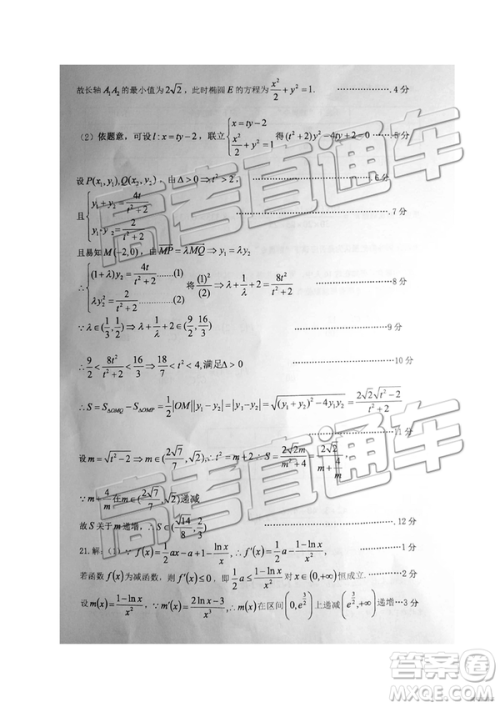 故长轴 A₁A₂ 的最小值为 2√2，此时椭圆 E 的方程为 x²/2 + y² = 1. ……4 分
（2）依题意，可设 l : x = ty − 2，联立 { x = ty − 2, x²/2 + y² = 1 得 (t² + 2)y² − 4ty + 2 = 0 ……5 分
设 P(x₁, y₁), Q(x₂, y₂)，由 Δ > 0 ⇒ t² > 2， ……6 分
且 { y₁ + y₂ = 4t/(t² + 2), y₁·y₂ = 2/(t² + 2) ……7 分
且易知 M(−2, 0)，由 MP = λMQ ⇒ y₁ = λy₂
∴ { (1 + λ)y₂ = 4t/(t² + 2) ……(1), λy₂² = 2/(t² + 2) ……(2) 将 (1)²/(2) ⇒ λ + 1/λ + 2 = 8t²/(t² + 2) ……8 分
∵ λ ∈ (1/3, 1/2) ⇒ λ + 1/λ + 2 ∈ (9/2, 16/3) ……9 分
∴ 9/2 < 8t²/(t² + 2) < 16/3 ⇒ 18/7 < t² < 4, 满足 Δ > 0 ……10 分
∴ S = S△OMQ − S△OMP = 1/2|OM||y₁ − y₂| = √((y₁ + y₂)² − 4y₁y₂) = 2√2√(t² − 2)/(t² + 2) ……11 分
设 m = √(t² − 2) ⇒ m ∈ (2√7/7, √2), ∴ t² = m² + 2 ∴ S = 2√2m/(m² + 4) = 2√2/(m + 4/m)
∵ m + 4/m 在 m ∈ (2√7/7, √2) 递减
故 S 关于 m 递增，∴ S ∈ (√14/8, 2/3) ……12 分
21.解：（1）∵ f(x) = 1/2 ax − a + 1 − ln x/x, ∴ f′(x) = 1/2 a − (1 − ln x)/x², ……1 分
若函数 f(x) 为减函数，则 f′(x) ≤ 0，即 1/2 a ≤ (1 − ln x)/x² 对 x ∈ (0, +∞) 恒成立. ……2 分
设 m(x) = (1 − ln x)/x², ∵ m′(x) = (2 ln x − 3)/x³, ∴ m(x) 在区间 (0, e^(3/2)] 上递减 (e^(3/2), +∞) 递增…3 分
高考直通车
高考直通车
高考直通车
答案圈